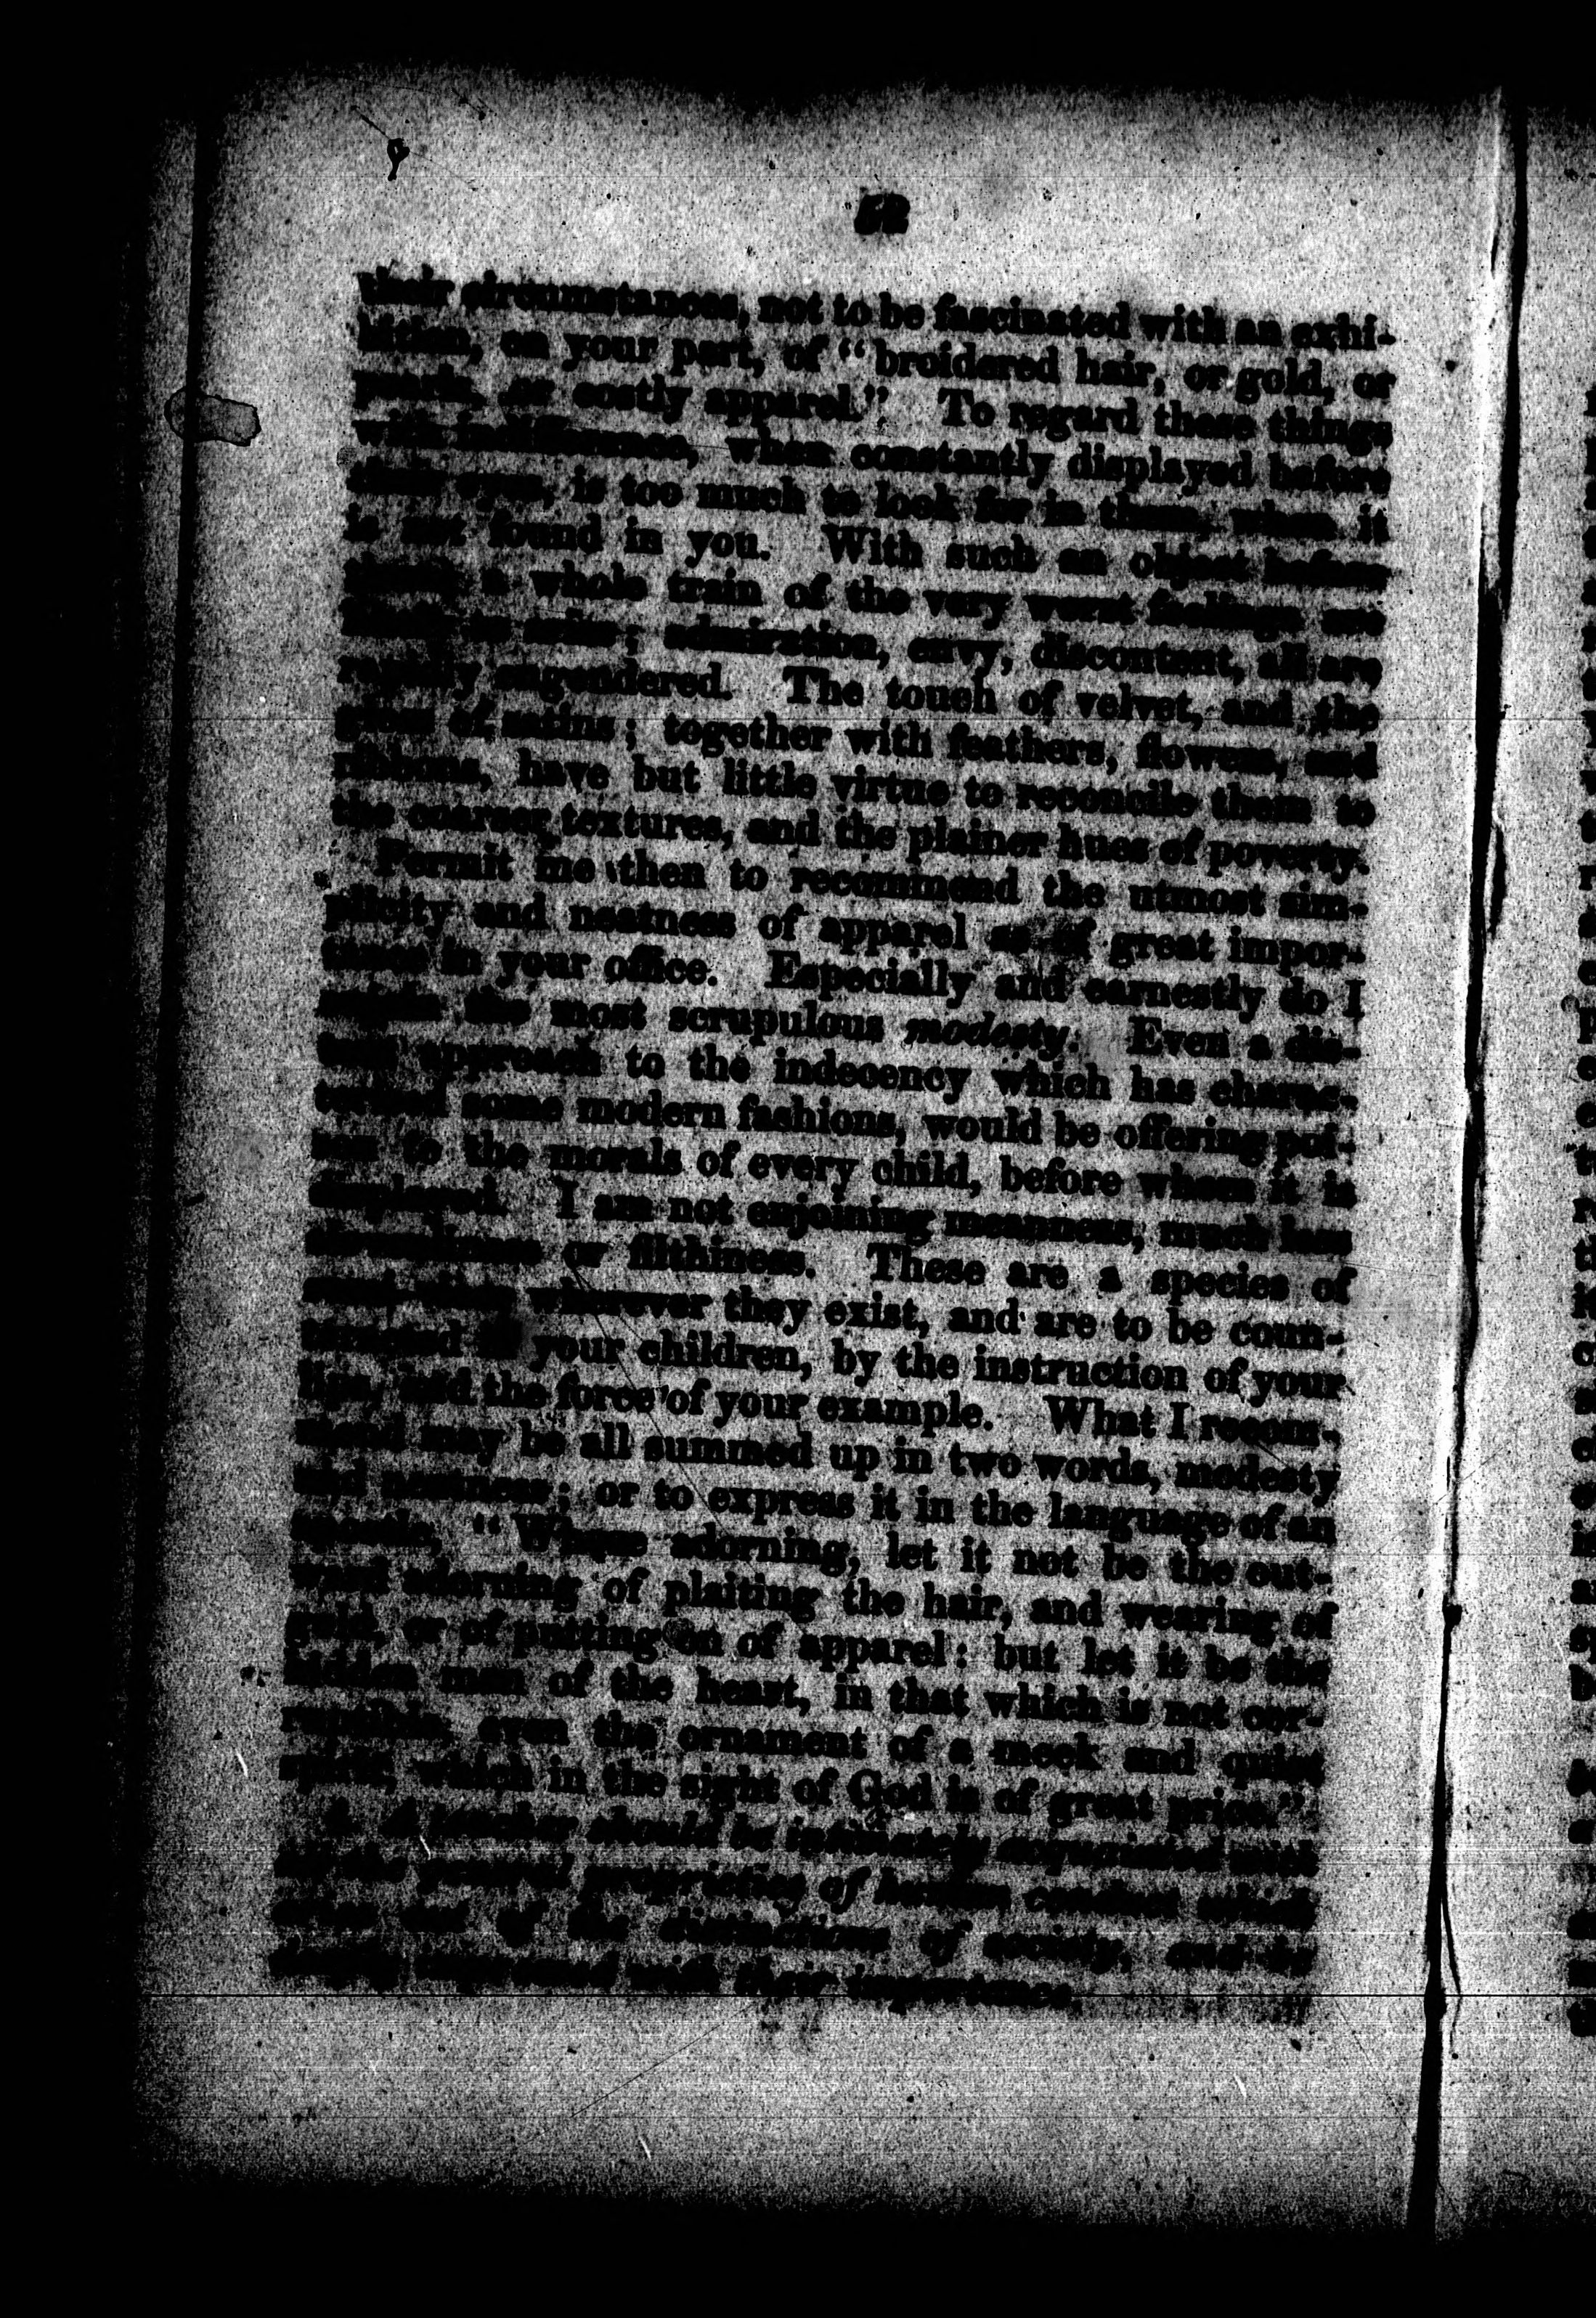 52
their circumstances, not to be fascinated with an exhi-
bition, on your part, of "broidered hair, or gold, or
pearls, or costly apparel." To regard these things
with indifference, when constantly displayed before
their eyes, is too much to look for in them, when it
is not found in you. With such an object before
them a whole train of the very worst feelings are
; admiration, envy, discontent, all are
rapidly engendered. The touch of velvet, and the
gloss of satins; together with feathers, flowers, and
ribbons, have but little virtue to reconcile them to
the coarser textures, and the plainer hues of poverty.
Permit me then to recommend the utmost sim-
plicity and neatness of apparel as of great impor-
tance in your office. Especially and earnestly do I
enjoin the most scrupulous modesty. Even a dis-
tant approach to the indecency which has charac-
terized some modern fashions, would be offering poi-
son to the morals of every child, before whom it is
displayed. I am not enjoining meanness, much less
slovenliness or filthiness. These are a species of
wherever they exist, and are to be coun-
teracted in your children, by the instruction of your
lips, and the force of your example. What I recom-
mend may be all summed up in two words, modesty
and neatness; or to express it in the language of an
apostle, "Whose adorning, let it not be the out-
ward adorning of plaiting the hair, and wearing of
gold, or of putting on of apparel: but let it be the
hidden man of the heart, in that which is not cor-
ruptible, even the ornament of a meek and quiet
spirit, which in the sight of God is of great price."
A teacher should be intimately acquainted with
all the general proprieties of human conduct which
arise out of the distinctions of society, and be
deeply impressed with their importance.